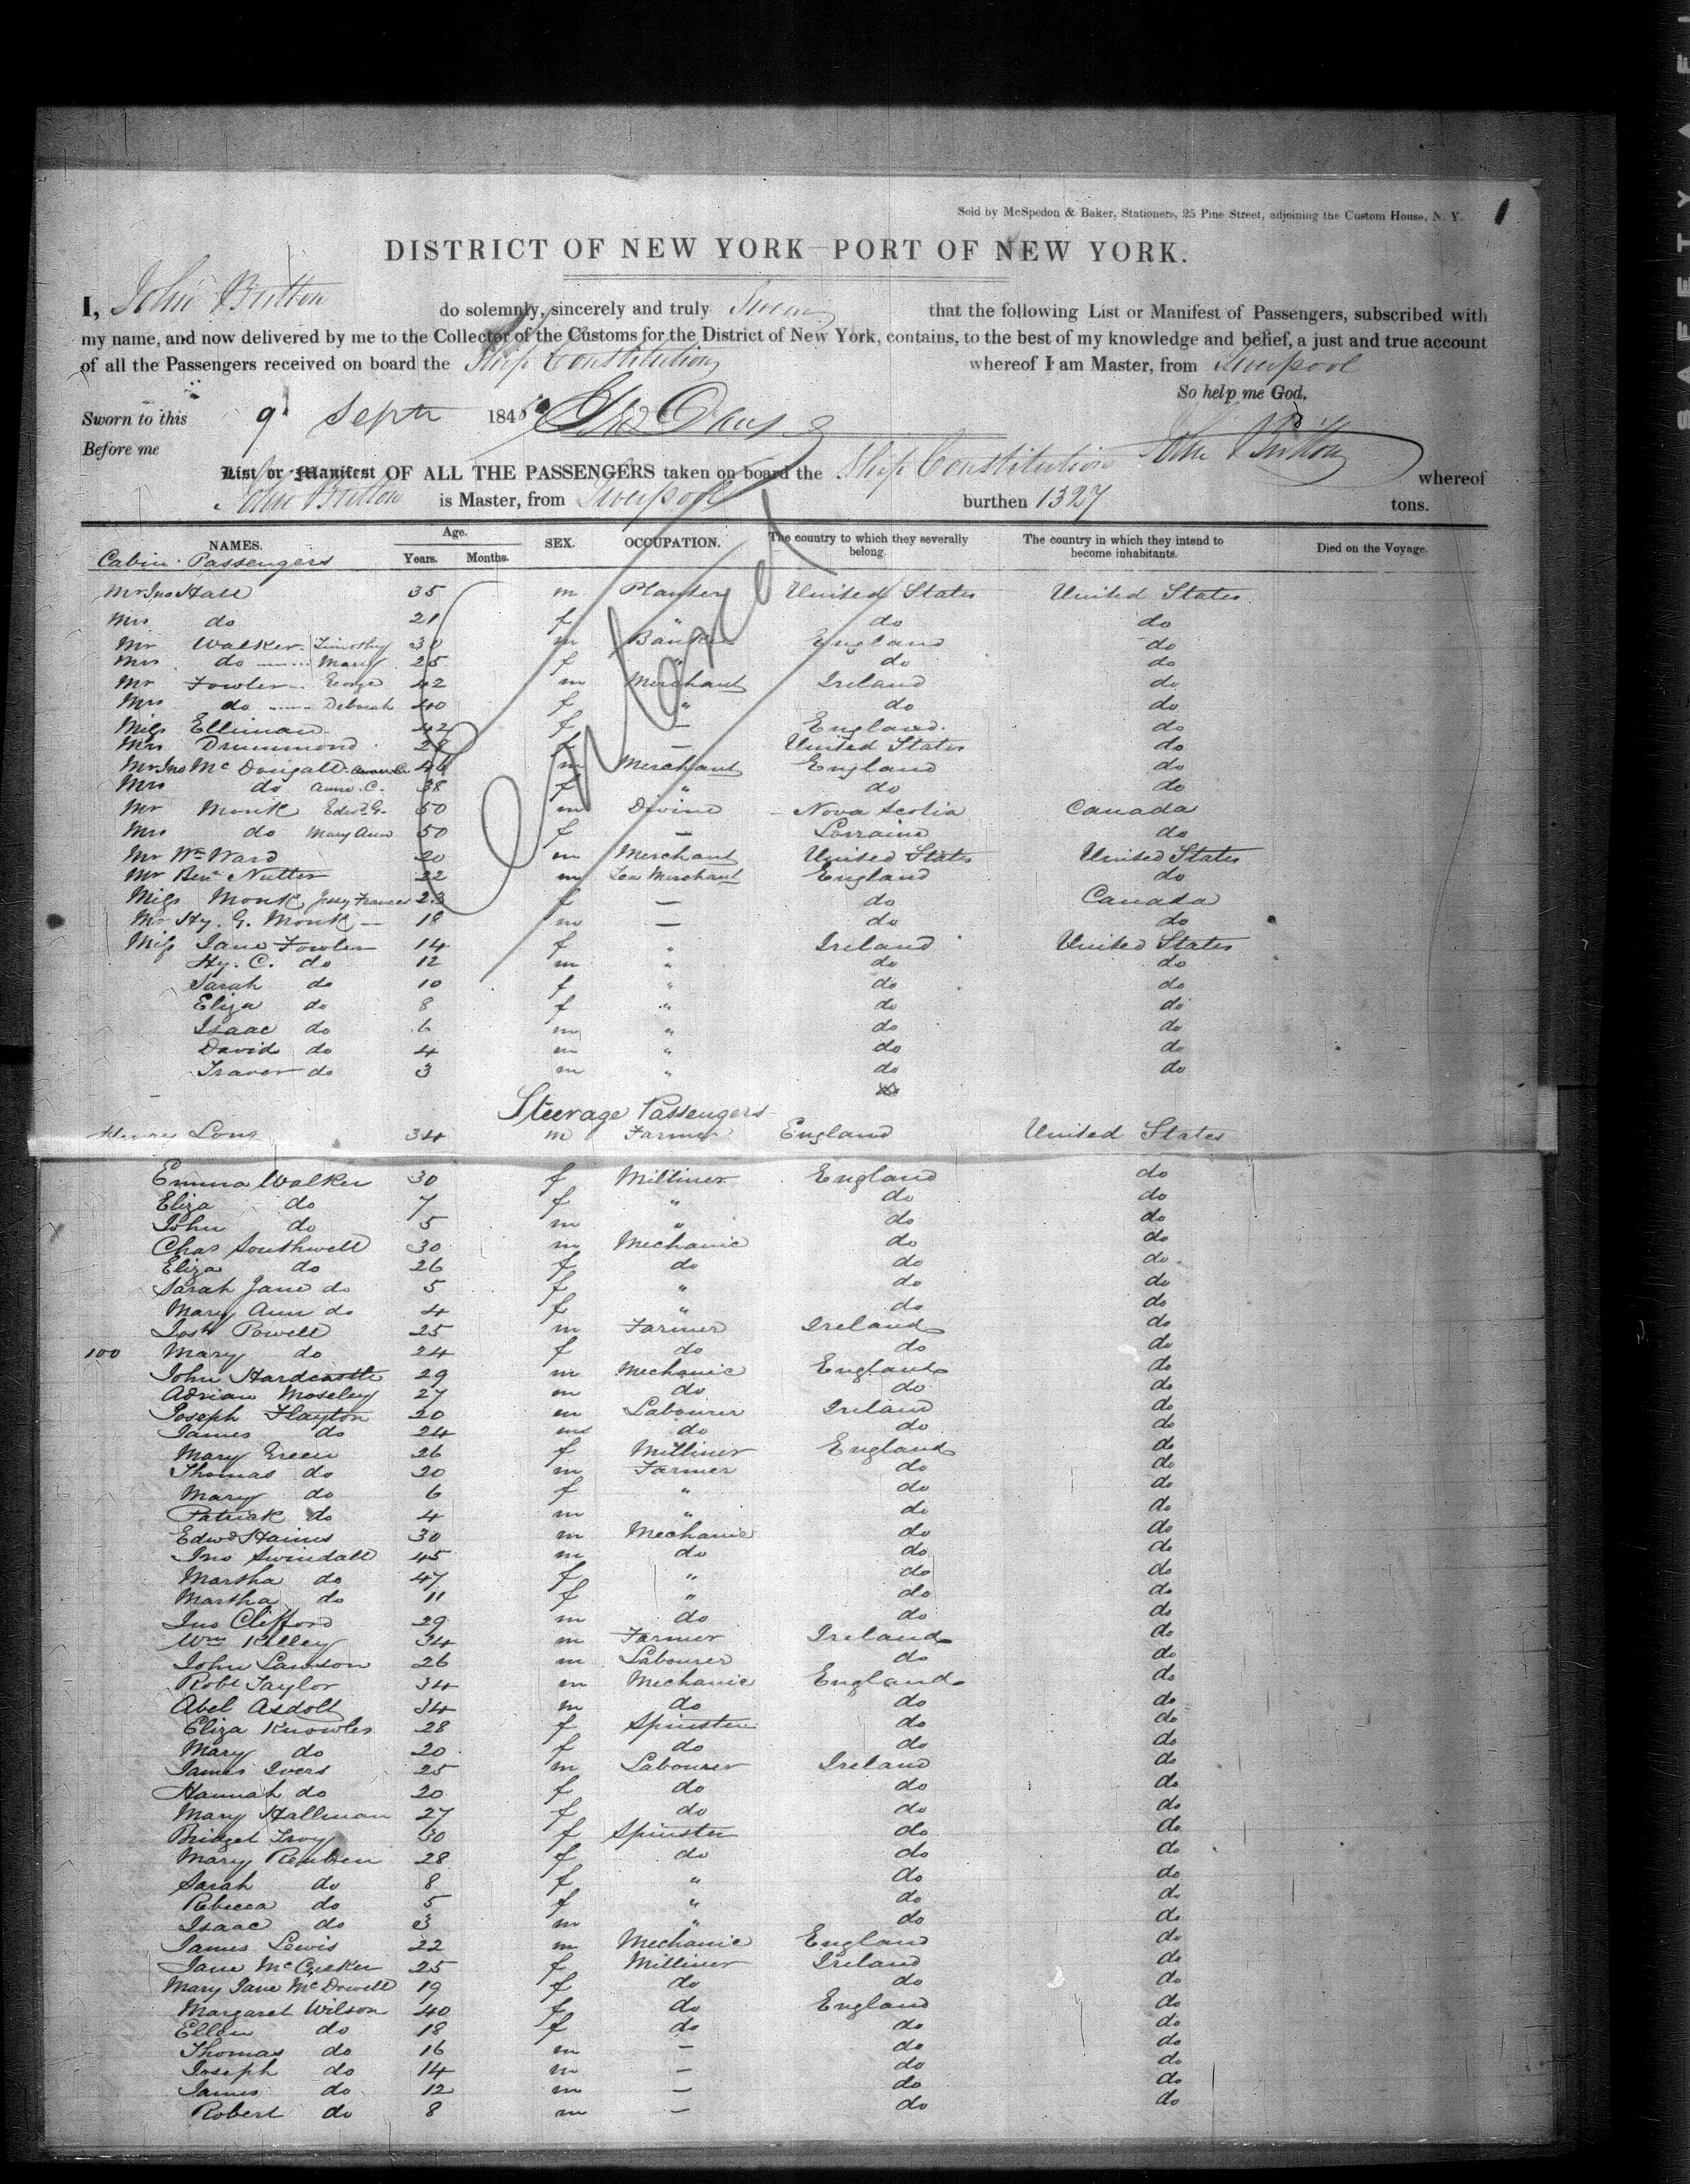 Sold by McSpedon & Baker, Stationers, 25 Pine Street, adjoining the Custom House, N. Y. 1
DISTRICT OF NEW YORK—PORT OF NEW YORK.
I, John Britton do solemnly, sincerely and truly Swear that the following List or Manifest of Passengers, subscribed with
my name, and now delivered by me to the Collector of the Customs for the District of New York, contains, to the best of my knowledge and belief, a just and true account
of all the Passengers received on board the Ship Constitution whereof I am Master, from Liverpool
So help me God.
Sworn to this 9 Septr 184
Before me John Britton
List or Manifest OF ALL THE PASSENGERS taken on board the Ship Constitution whereof
John Britton is Master, from Liverpool burthen 1327 tons.
NAMES. Age. Years. Months. SEX. OCCUPATION. The country to which they severally belong. The country in which they intend to become inhabitants. Died on the Voyage.
Cabin Passengers
Mr Jno Hall 35 m Planter United States United States
Mrs do 21 f " do do
Mr Walker Timothy 30 m Banker England do
Mrs do Mary 25 f " do do
Mr Fowler George 42 m Merchant Ireland do
Mrs do Deborah 40 f " do do
Miss Elliman 42 f — England do
Mrs Drummond 28 f — United States do
Mr Jno McDougall 46 m Merchant England do
Mrs do Anne C. 38 f " do do
Mr Monk Edwd G. 50 m Divine Nova Scotia Canada
Mrs do Mary Ann 50 f — Lorraine do
Mr Wm Ward 20 m Merchant United States United States
Mr Benn Nutter 22 m Tea Merchant England do
Miss Monk Jessy Frances 23 f — do Canada
Mr Hy. G. Monk — 18 m — do do
Miss Jane Fowler 14 f " Ireland United States
Hy. C. do 12 m " do do
Sarah do 10 f " do do
Eliza do 8 f " do do
Isaac do 6 m " do do
David do 4 m " do do
Traver do 3 m " do do
Steerage Passengers
Henry Long 34 m Farmer England United States
Emma Walker 30 f Milliner England do
Eliza do 7 f " do do
John do 5 m " do do
Chas Southwell 30 m Mechanic do do
Eliza do 26 f do do do
Sarah Jane do 5 f " do do
Mary Ann do 4 f " do do
Josh Powell 25 m Farmer Ireland do
100 Mary do 24 f do do do
John Hardcastle 29 m Mechanic England do
Adrian Moseley 27 m do do do
Joseph Flayton 20 m Labourer Ireland do
James do 24 m do do do
Mary Green 26 f Milliner England do
Thomas do 20 m Farmer do do
Mary do 6 f " do do
Patrick do 4 m " do do
Edwd Haines 30 m Mechanic do do
Jno Swindall 45 m do do do
Martha do 47 f " do do
Martha do 11 f " do do
Jno Clifford 29 m do do do
Wm Kelley 34 m Farmer Ireland do
John Lawson 26 m Labourer do do
Robt Taylor 34 m Mechanic England do
Abel Asdolt 34 m do do do
Eliza Knowles 28 f Spinster do do
Mary do 20 f do do do
James Ivers 25 m Labourer Ireland do
Hannah do 20 f do do do
Mary Hallman 27 f do do do
Bridget Troy 30 f Spinster do do
Mary Reuben 28 f do do do
Sarah do 8 f " do do
Rebecca do 5 f " do do
Isaac do 3 m " do do
James Lewis 22 m Mechanic England do
Jane McCusker 25 f Milliner Ireland do
Mary Jane McDowell 19 f do do do
Margaret Wilson 40 f do England do
Ellen do 18 f do do do
Thomas do 16 m — do do
Joseph do 14 m — do do
James do 12 m — do do
Robert do 8 m — do do